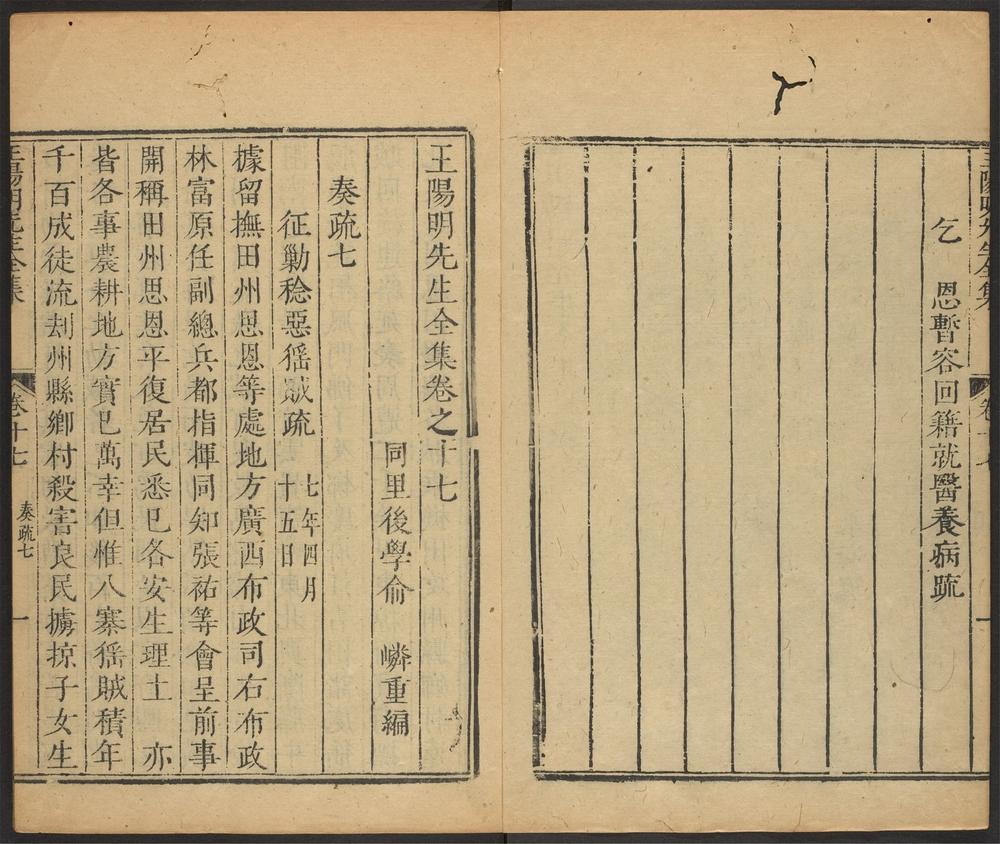 王陽明先生全集
卷十七
一
乞　恩暫容回籍就醫養病疏
王陽明先生全集卷之十七
同里後學俞　嶙重編
奏疏七
征勦稔惡猺賊疏
七年四月
十五日
據留撫田州思恩等處地方廣西布政司右布政
林富原任副總兵都指揮同知張祐等會呈前事
開稱田州思恩平復居民悉已各安生理土　亦
皆各事農耕地方實已萬幸但惟八寨猺賊積年
千百成徒流刦州縣鄉村殺害良民擄掠子女生
王陽明先生全集
卷十七
奏疏七
一